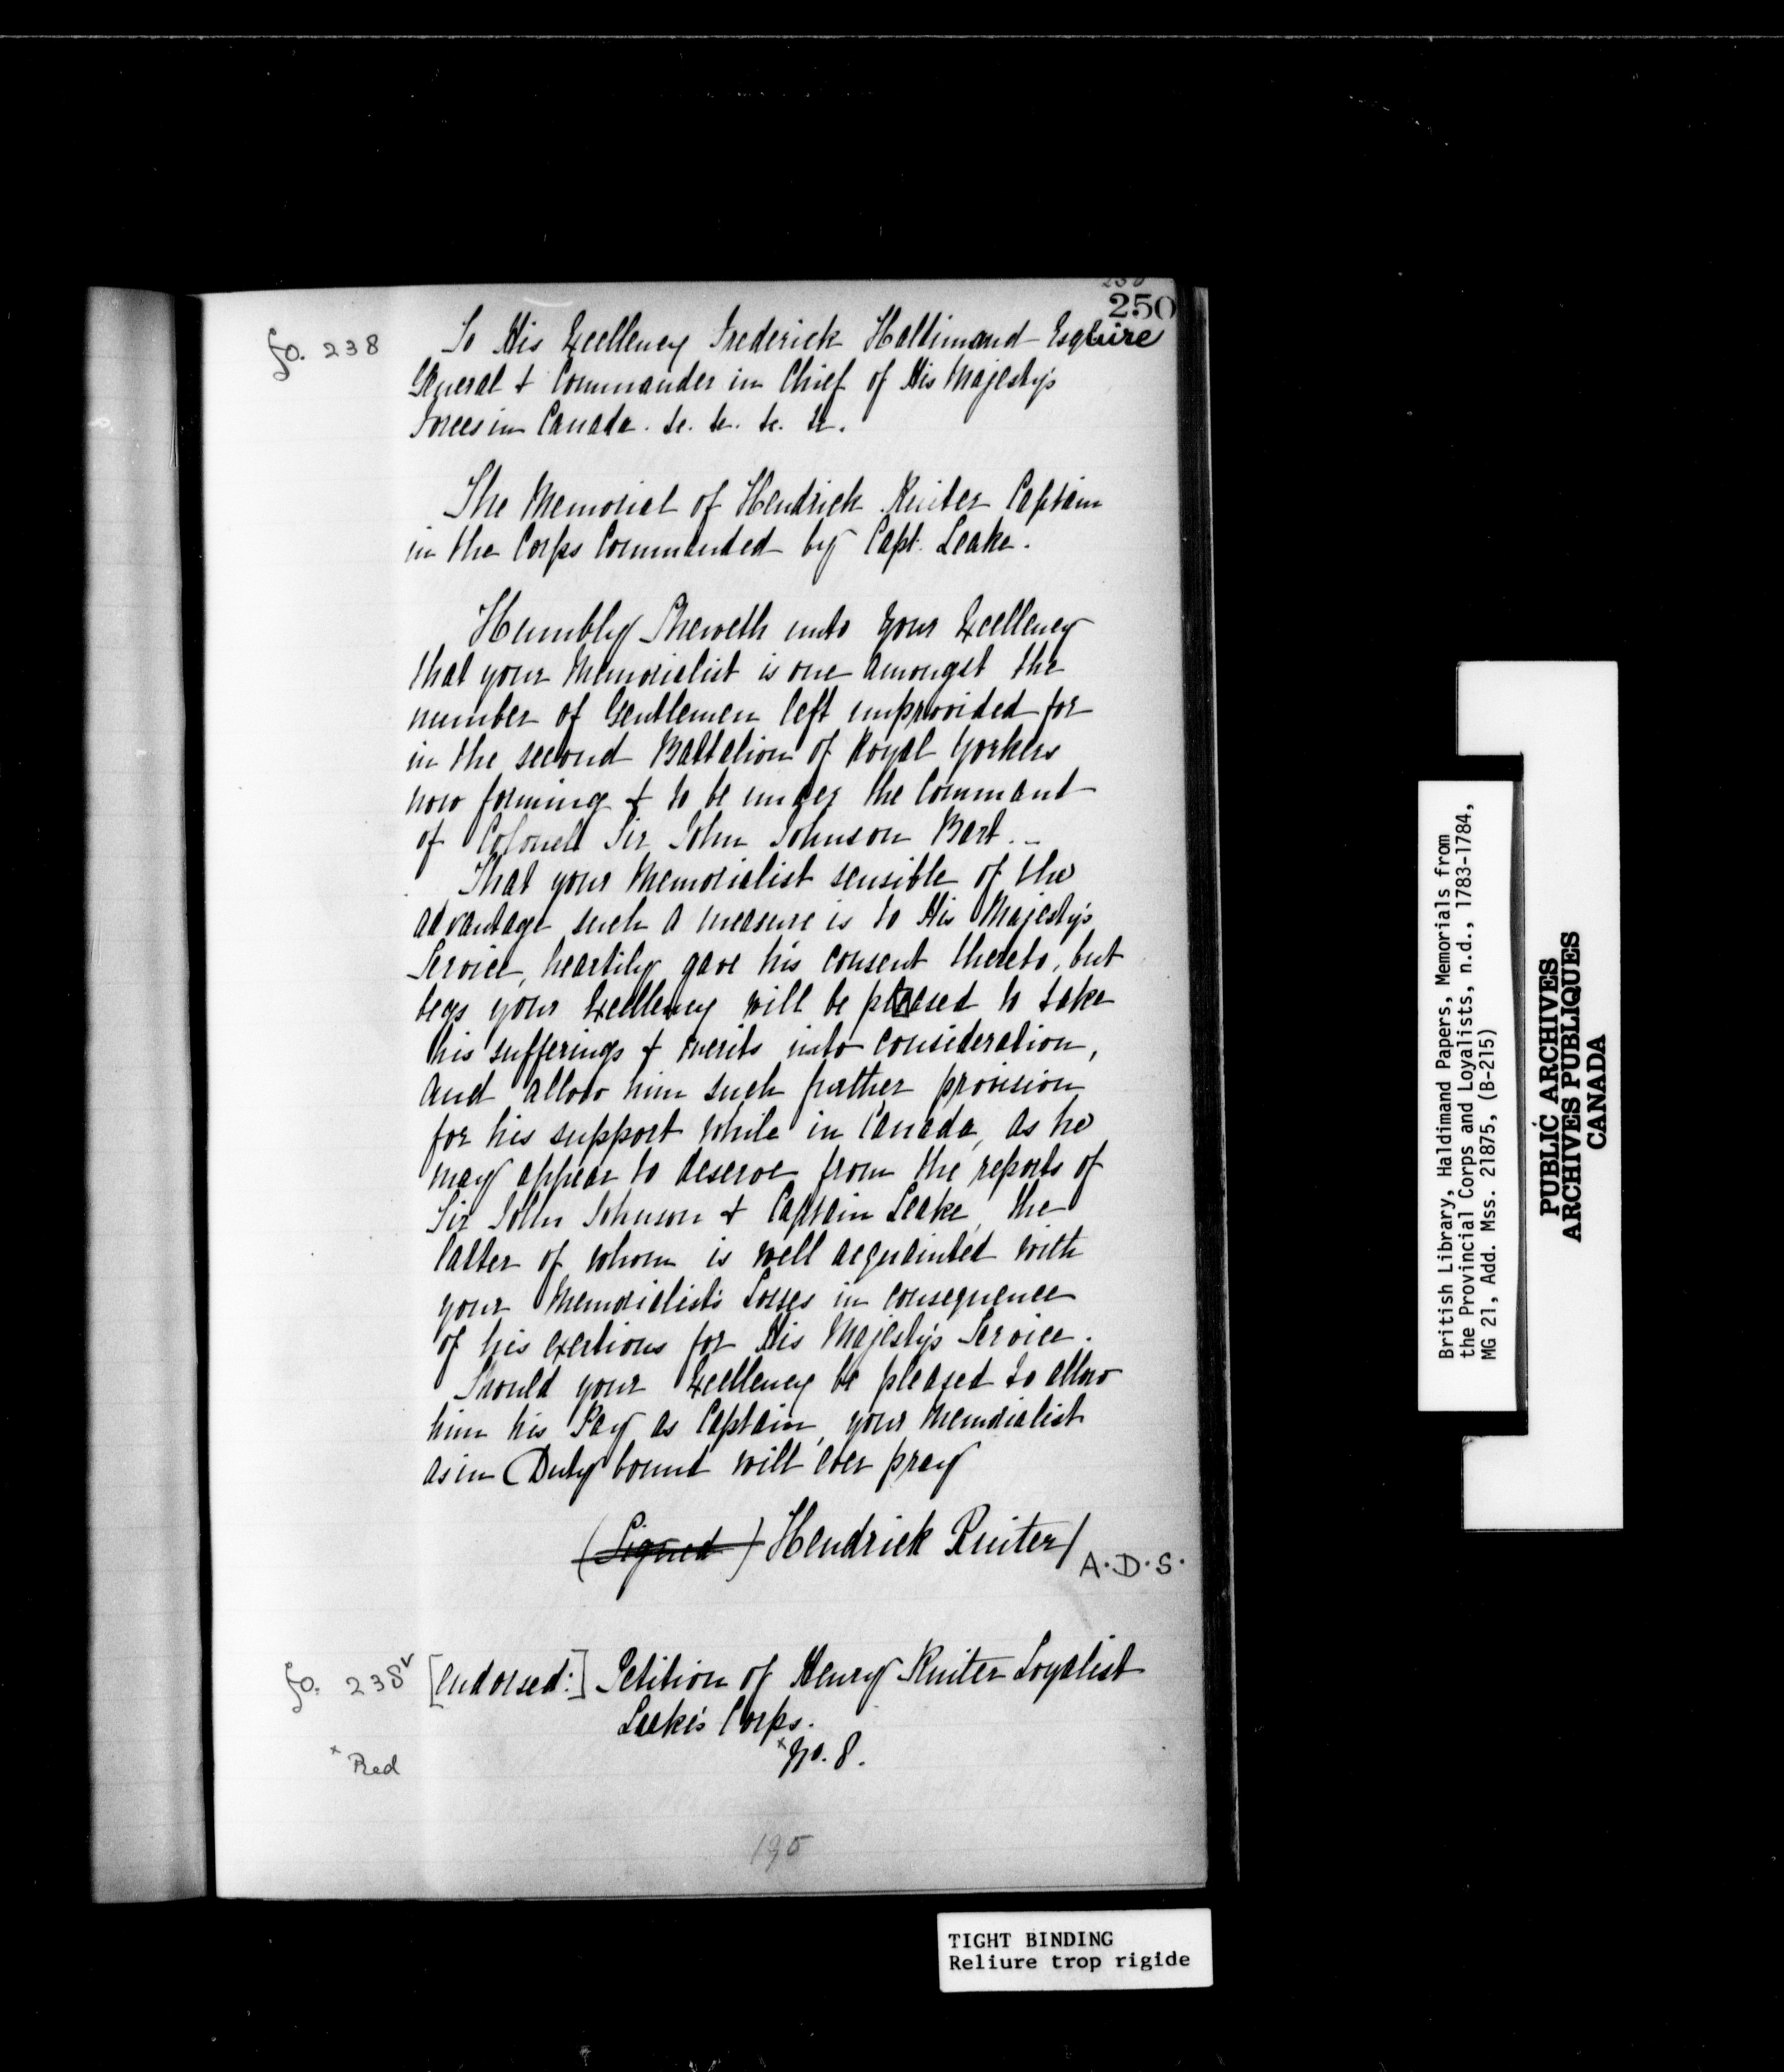 250
250
fo. 238
To His Excellency Frederick Haldimand Esquire
General & Commander in Chief of His Majesty's
Forces in Canada. &c. &c. &c. &c.
The Memorial of Hendrick Ruiter Captain
in the Corps Commanded by Capt. Leake.
Humbly Sheweth unto your Excellency
that your Memorialist is one amongst the
number of Gentlemen left unprovided for
in the second Battalion of Royal Yorkers
now forming & to be under the Command
of Colonel Sir John Johnson Bart. –
That your Memorialist sensible of the
advantage such a measure is to His Majesty's
Service, heartily gave his consent thereto, but
begs your Excellency will be pleased to take
his sufferings & merits into consideration,
and allow him such further provision
for his support while in Canada, as he
may appear to deserve from the reports of
Sir John Johnson & Captain Leake, the
latter of whom is well acquainted with
your Memorialist's Losses in consequence
of his exertions for His Majesty's Service.
Should your Excellency be pleased to allow
him his Pay as Captain, your Memorialist
as in Duty bound will ever pray
(Signed) Hendrick Ruiter/
A.D.S.
fo. 238v [endorsed:] Petition of Henry Ruiter Loyalist
Leake's Corps.
x No. 8.
x Red
195
TIGHT BINDING
Reliure trop rigide
British Library, Haldimand Papers, Memorials from
the Provincial Corps and Loyalists, n.d., 1783-1784,
MG 21, Add. Mss. 21875, (B-215)
PUBLIC ARCHIVES
ARCHIVES PUBLIQUES
CANADA